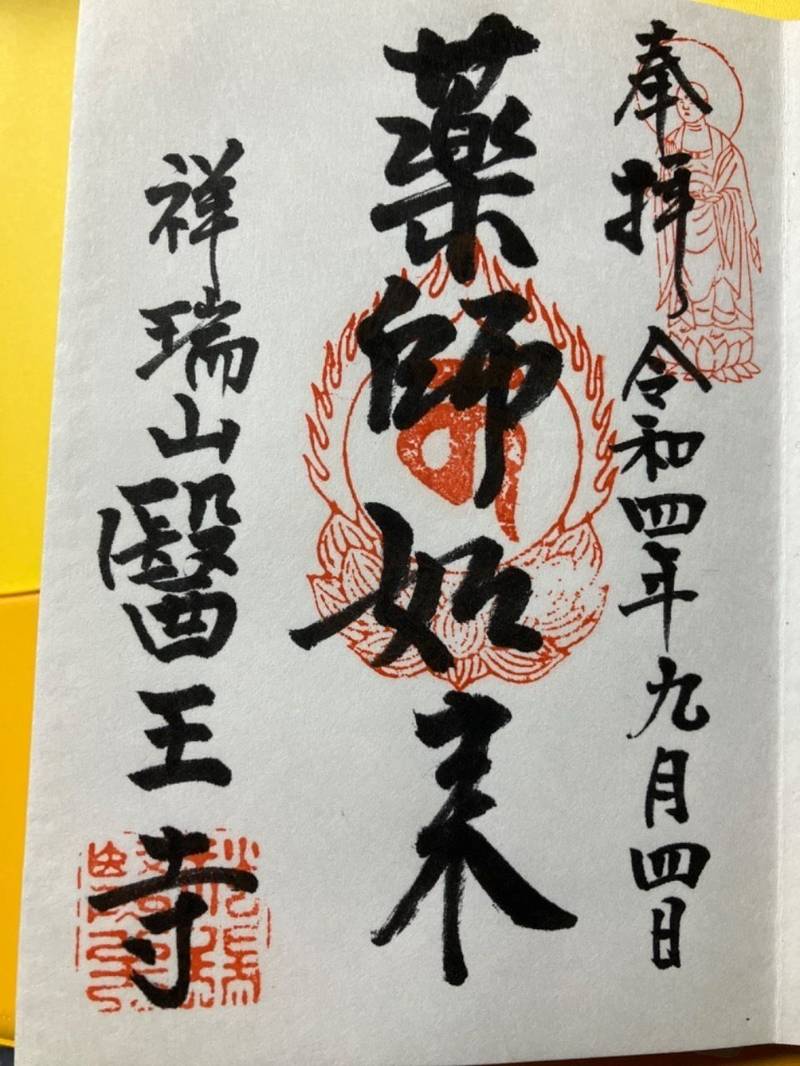 奉拝 令和四年九月四日
薬師如来
祥瑞山醫王寺